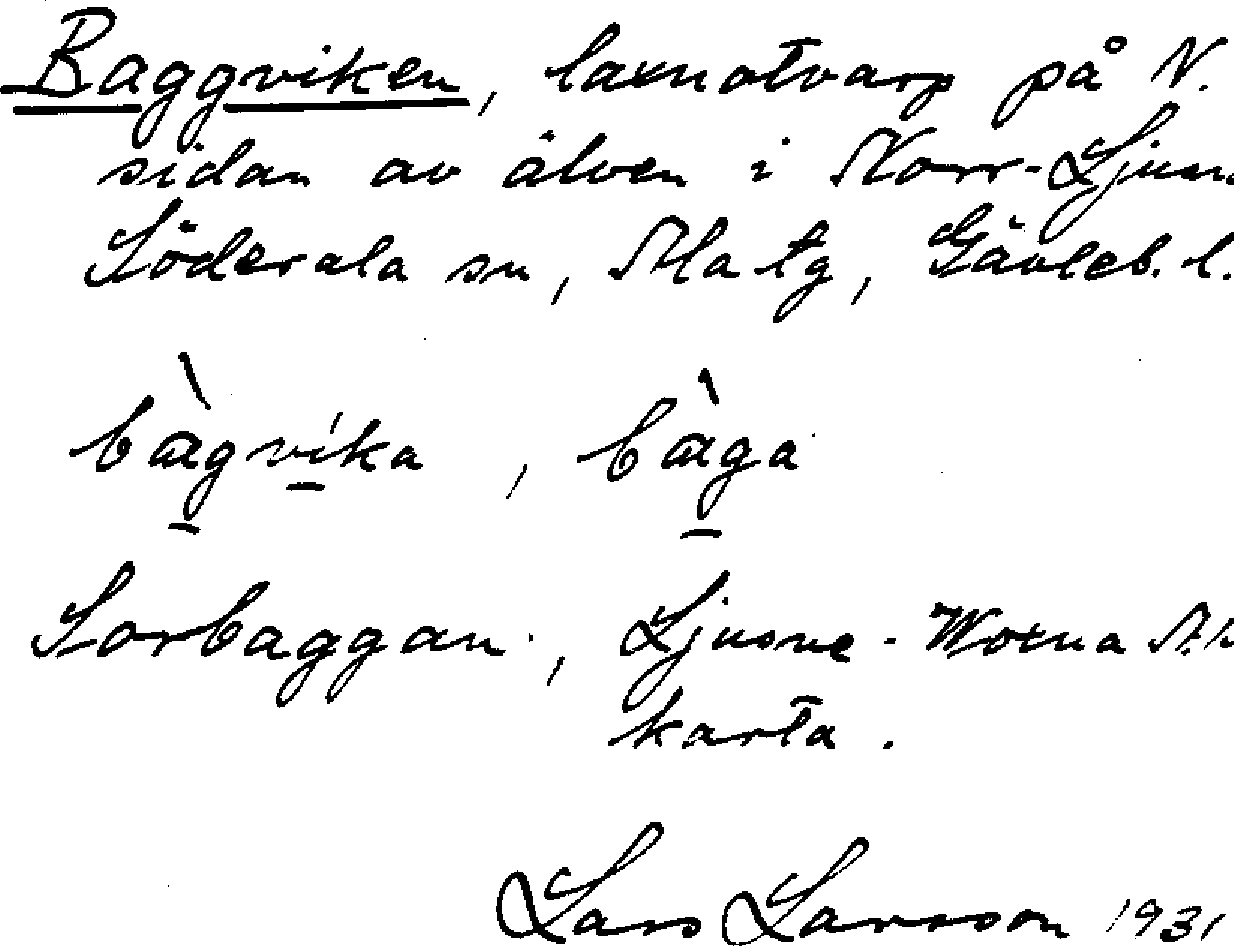 Baggviken, laxnotvarp på N.
sidan av älven i Norr-Ljusn
Söderala sn, Ala tg, Gävleb. l.
bàgvíka, bàga
Sorbaggan, Ljusne-Woxna
karta.
Lars Larsson 1931